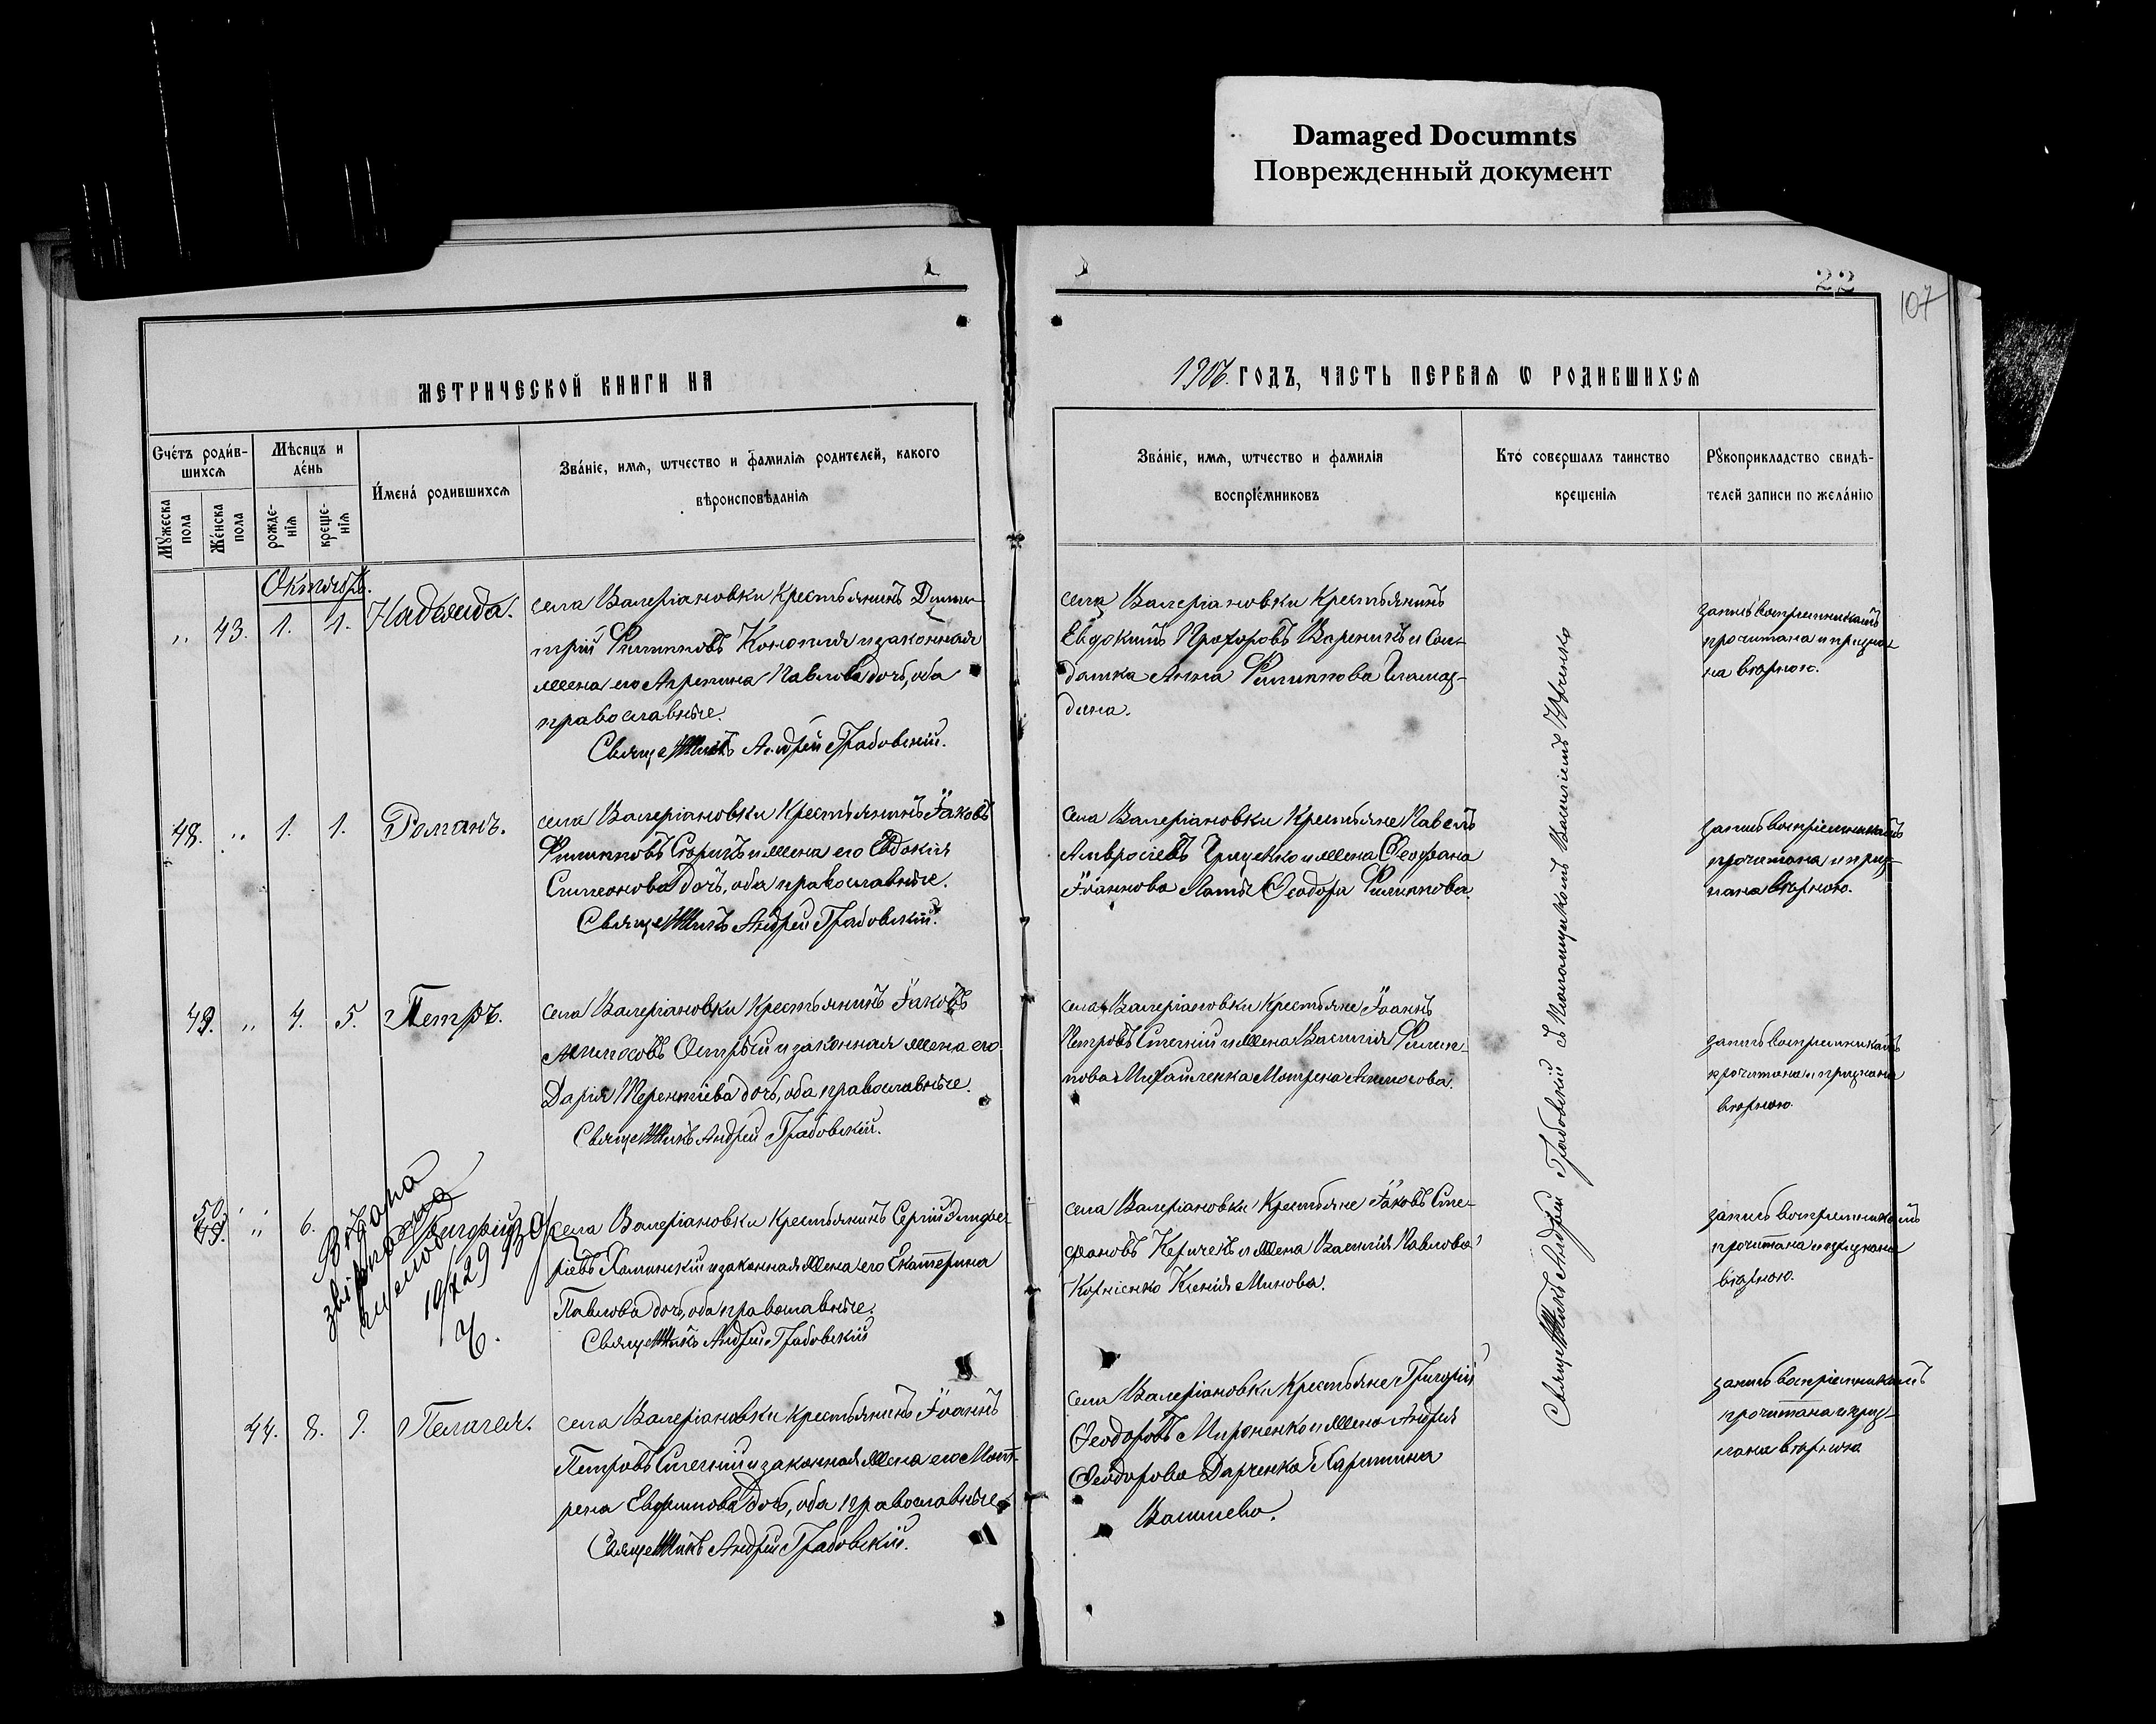 Damaged Documnts
Поврежденный документ
22
107
МЕТРИЧЕСКОЙ КНИГИ НА
1906. ГОДЪ, ЧАСТЬ ПЕРВАѦ Ѡ РОДИВШИХСѦ
Счéтъ роди́в-
шихсѧ
Мꙋжеска
пола
Жéнска
пола
Мѣсяцъ и
дéнь
рожде-
нїѧ
креще-
нїѧ
И́мена́ родившихсѧ
Зва́нїе, имѧ, ѡтчество и фамилїѧ родителей, какого
вѣроисповѣданїѧ
Зва́нїе, имѧ, ѡтчество и фамилїѧ
воспрїе́мниковъ
Кто́ совершалъ таинство
крещенїѧ
Рꙋкоприкладство свидѣ-
телей записи по жела́нїю
Октябрь.
„ 43. 1. 1. Надежда.
села Валеріановки Крестьянинъ Дими-
трій Филипповъ Конопля и законная
жена его Агрипина Павлова дочь, оба
православные.
Священникъ Андрей Грабовскій.
села Валеріановки Крестьянинъ
Евдокимъ Прохоровъ Вареникъ и Сол-
датка Анна Филиппова
дина.
запись воспріемникамъ
прочитана и призна-
на вѣрною.
48. „ 1. 1. Романъ.
села Валеріановки Крестьянинъ Іаковъ
Филипповъ и жена его Евдокія
Симеонова дочь, оба православные.
Священникъ Андрей Грабовскій.
Села Валеріановки Крестьяне Павелъ
Амвросіевъ Гриценко и жена Феофана
Іоаннова Феодора Филиппова.
запись воспріемникамъ
прочитана и приз-
нана вѣрною.
49. „ 4. 5. Петръ.
села Валеріановки Крестьянинъ Іаковъ
Острый и законная жена его
Дарія Терентіева дочь, оба православные.
Священникъ Андрей Грабовскій.
села Валеріановки Крестьяне Іоаннъ
Петровъ Стегній и жена Василія Филип-
пова Михайленка Матрена
запись воспріемникамъ
прочитана и признана
вѣрною.
50. „ 6.
села Валеріановки Крестьянинъ Сергій Елифе-
ріевъ Каминскій и законная жена его Екатерина
Павлова дочь, оба православные.
Священникъ Андрей Грабовскій
села Валеріановки Крестьяне Іаковъ Сте-
фановъ и жена Василія Павлова
Корніенко Ксенія Минова.
запись воспріемникамъ
прочитана и признана
вѣрною.
44. 8. 9. Пелагея.
села Валеріановки Крестьянинъ Іоаннъ
Петровъ Стегній и законная жена его Мат-
рена Евфимова дочь, оба православные.
Священникъ Андрей Грабовскій.
села Валеріановки Крестьяне Григорій
Феодоровъ Мироненко и жена Андрея
Феодорова Харитина
запись воспріемникамъ
прочитана и приз-
нана вѣрною
Священникъ Андрей Грабовскій съ Псаломщикомъ Василіемъ